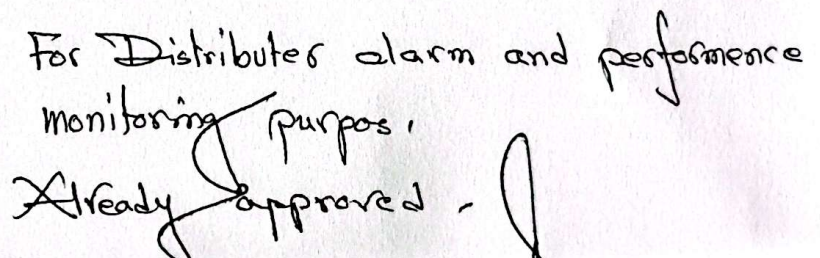 For Distributer alarm and performence
monitoring purpos.
Already approved -